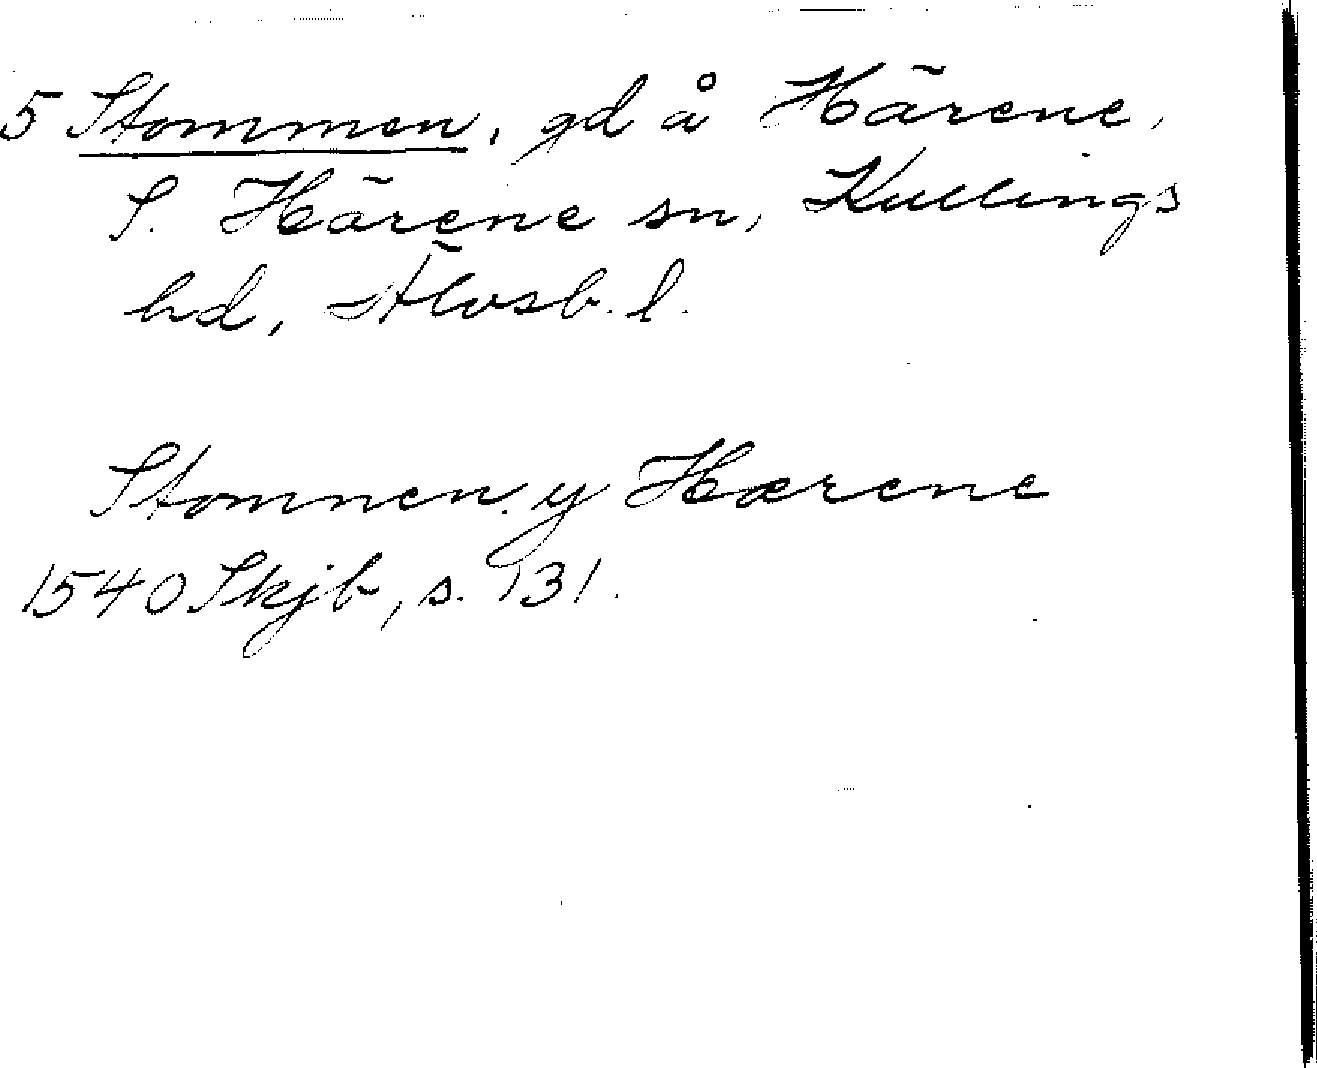 5 Stommen, gd å Härene,
S. Härene sn, Kullings
hd, Älvsb. l.
Stomnen y Hærene
1540 Skjb, s. 131.